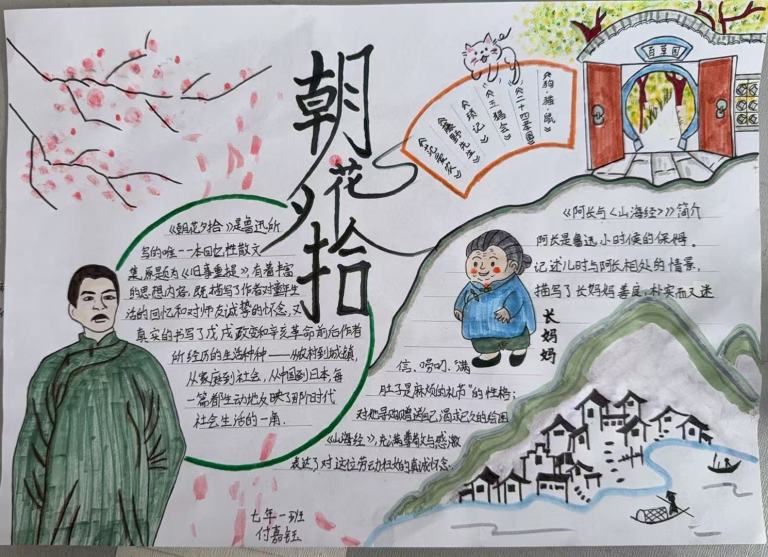 朝花夕拾
《狗·猫·鼠》
《二十四孝图》
《五猖会》
《琐记》
《藤野先生》
《范爱农》
百草园
《朝花夕拾》是鲁迅所
写的唯一一本回忆性散文
集,原题为《旧事重提》,有着丰富
的思想内容,既描写了作者对童年生
活的回忆和对师友诚挚的怀念,又
真实的书写了戊戌政变和辛亥革命前后作者
所经历的生活种种——从农村到城镇,
从家庭到社会,从中国到日本,每
一篇都生动地反映了那个时代
社会生活的一角.
《阿长与《山海经》》简介
阿长是鲁迅小时候的保姆.
记述儿时与阿长相处的情景,
描写了长妈妈善良,朴实而又迷
信、唠叨、"满
肚子是麻烦的礼节"的性格;
对她寻购赠送自己渴求已久的绘图
《山海经》,充满尊敬与感激
表达了对这位劳动妇女的真诚怀念.
长妈妈
七年一班
付嘉钰